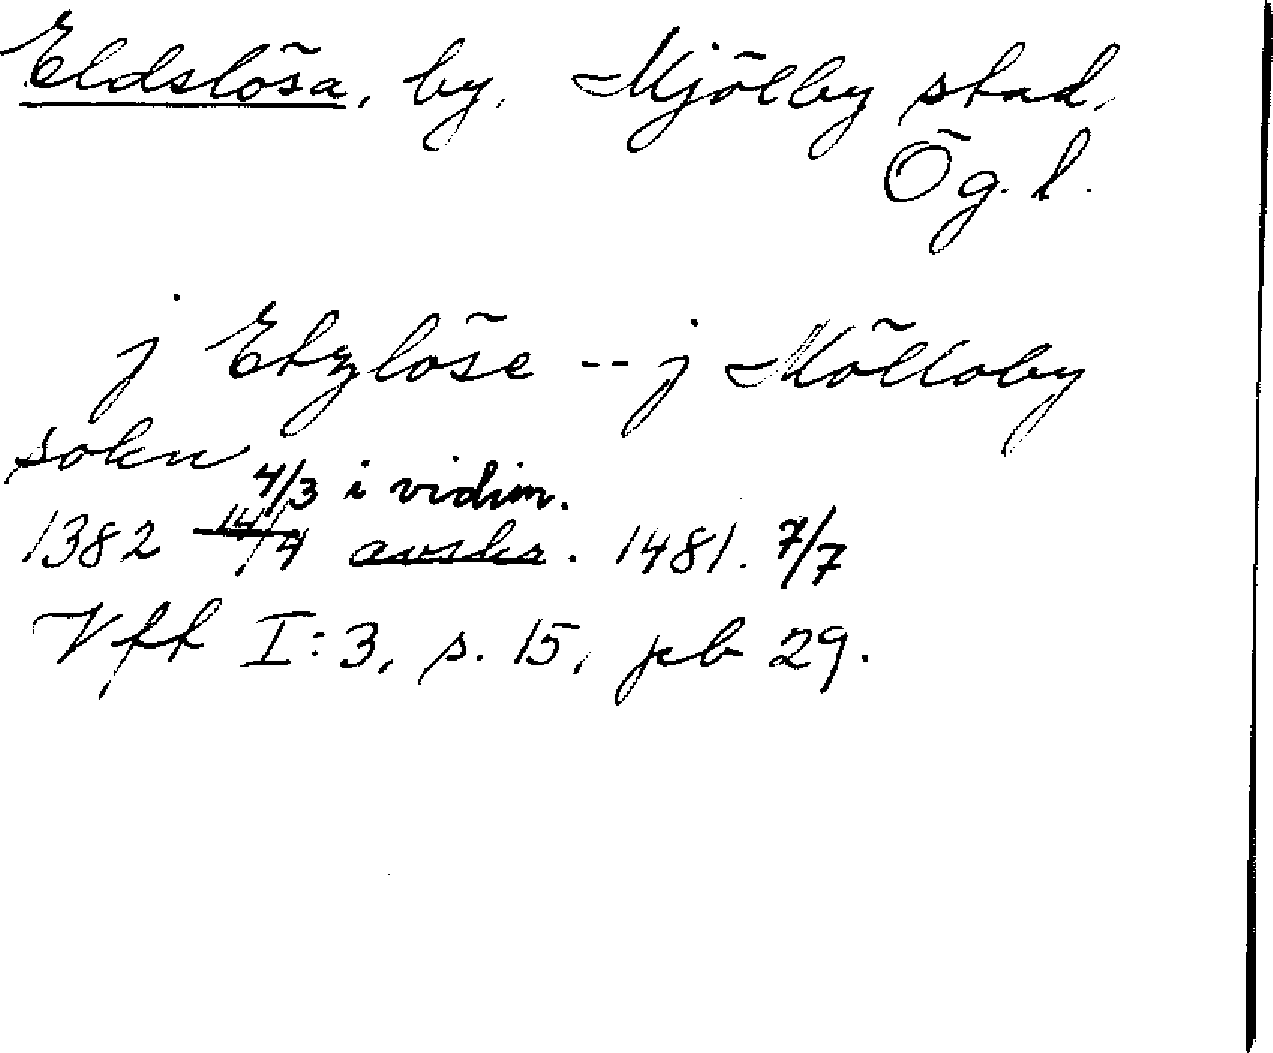 Eldslösa, by, Mjölby stad,
Ög. l.
j Etzlöse -- j Möllöby
sokn
4/3 i vidim.
1382 14/4 avskr. 1481. 7/7
Vff I:3, s. 15, peb 29.